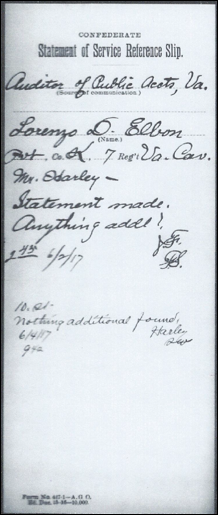 CONFEDERATE
Statement of Service Reference Slip.
Auditor of Public Accts, Va.
(Source of communication.)
Lorenzo D. Elbon
(Name.)
Pvt. Co. K. 7 Reg't Va. Cav.
Mr. Harley —
Statement made.
Anything addl?
6/2/17
Nothing additional found,
6/4/17 Harley
Form No. 417-1—A. G. O.